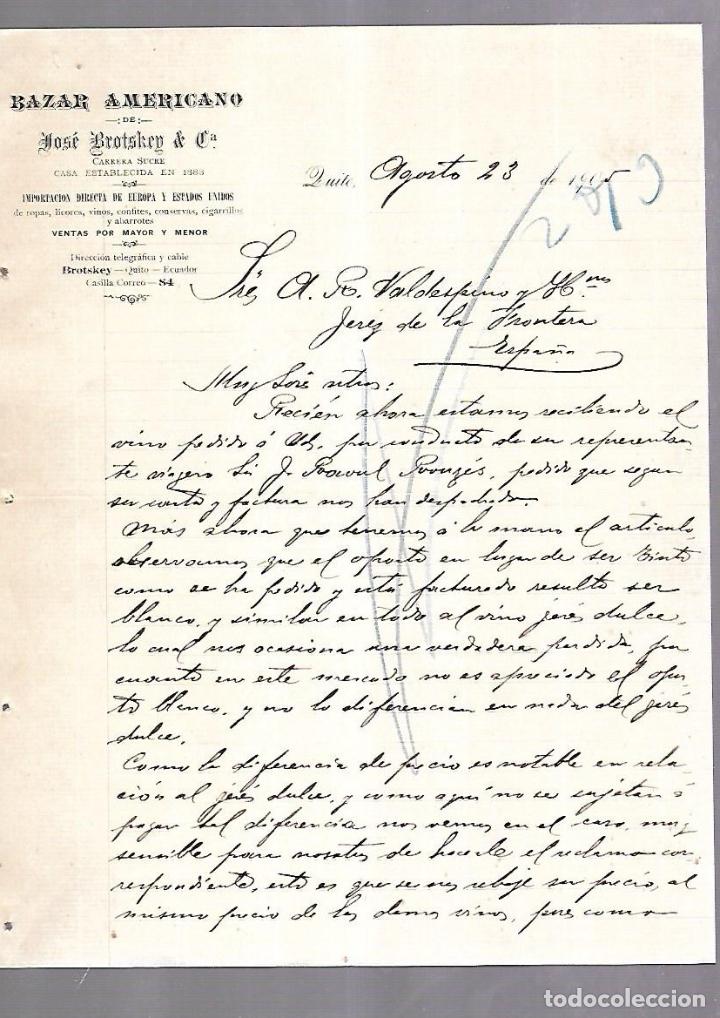 BAZAR AMERICANO
—:DE:—
José Brotskey & Cª
CARRERA SUCRE
CASA ESTABLECIDA EN 1883
IMPORTACION DIRECTA DE EUROPA Y ESTADOS UNIDOS
de ropas, licores, vinos, confites, conservas, cigarrillos
y abarrotes
VENTAS POR MAYOR Y MENOR
Dirección telegráfica y cable
Brotskey—Quito—Ecuador
Casilla Correo—84
Quito, Agosto 23 de 1905
Srés A. R. Valdespino y Hnos
Jeréz de la Frontera
España
Muy Sorés ntros:
Recién ahora estamos recibiendo el
vino pedido á Uds, por conducto de su representan-
te viagero Sñr J. Raoul, pedido que segun
su carta y factura nos han despachado.
Más ahora que tenemos á la mano el artículo,
observamos que el oporto en lugar de ser Tinto
como se ha pedido y está facturado resulta ser
blanco, y similar en todo al vino jeréz dulce,
lo cual nos ocasiona una verdadera perdida, por
cuanto en este mercado no es apreciado el opor-
to blanco, y no lo diferencian en nada del jeréz
dulce.
Como la diferencia de precio es notable en rela-
ción al jeréz dulce, y como aquí no se sujetan á
pagar tal diferencia nos vemos en el caso, muy
sensible para nosotros de hacerle el reclamo cor-
respondiente, esto es que se nos rebaje su precio, al
mismo precio de los demas vinos, pues como
todocoleccion
todocoleccion.net